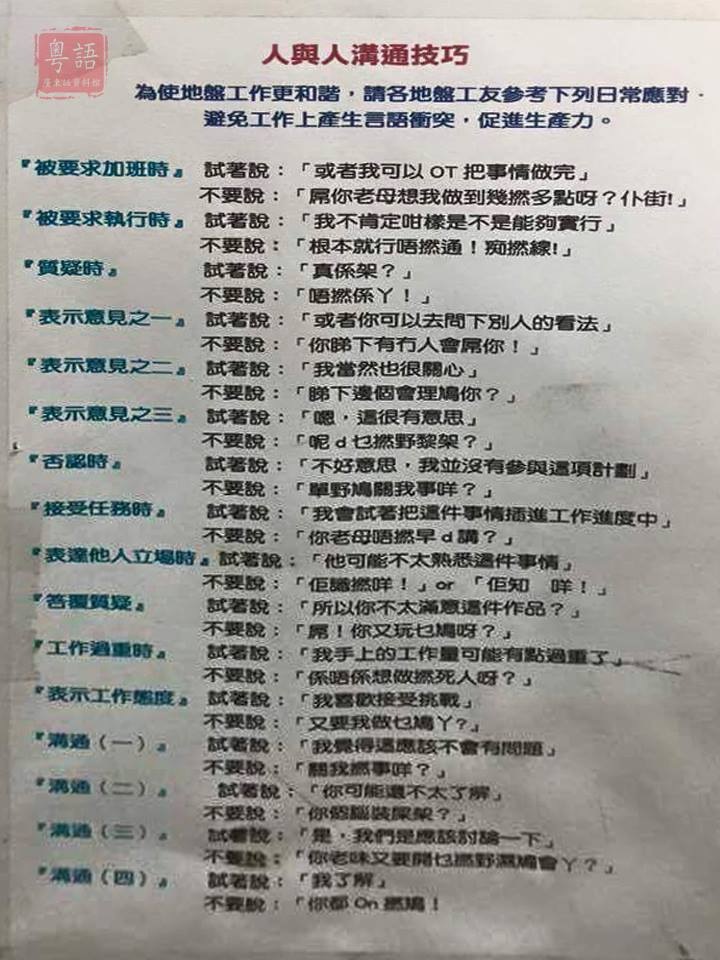 粵語
廣東話資料館
人與人溝通技巧
為使地盤工作更和諧，請各地盤工友參考下列日常應對．
避免工作上產生言語衝突，促進生產力。
『被要求加班時』 試著說：「或者我可以 OT 把事情做完」
不要說：「屌你老母想我做到幾撚多點呀？仆街!」
『被要求執行時』 試著說：「我不肯定咁樣是不是能夠實行」
不要說：「根本就行唔撚通！痴撚線!」
『質疑時』 試著說：「真係架？」
不要說：「唔撚係丫！」
『表示意見之一』 試著說：「或者你可以去問下別人的看法」
不要說：「你睇下有冇人會屌你！」
『表示意見之二』 試著說：「我當然也很關心」
不要說：「睇下邊個會理鳩你？」
『表示意見之三』 試著說：「嗯，這很有意思」
不要說：「呢 d 乜撚野黎架？」
『否認時』 試著說：「不好意思，我並沒有參與這項計劃」
不要說：「單野鳩關我事咩？」
『接受任務時』 試著說：「我會試著把這件事情插進工作進度中」
不要說：「你老母唔撚早 d 講？」
『表達他人立場時』 試著說：「他可能不太熟悉這件事情」
不要說：「佢識撚咩！」or 「佢知 咩！」
『答覆質疑』 試著說：「所以你不太滿意這件作品？」
不要說：「屌！你又玩乜鳩呀？」
『工作過重時』 試著說：「我手上的工作量可能有點過重了」
不要說：「係唔係想做撚死人呀？」
『表示工作態度』 試著說：「我喜歡接受挑戰」
不要說：「又要我做乜鳩丫?」
『溝通（一）』 試著說：「我覺得這應該不會有問題」
不要說：「關我撚事咩？」
『溝通（二）』 試著說：「你可能還不太了解」
不要說：「你個腦裝屎架？」
『溝通（三）』 試著說：「是，我們是應該討論一下」
不要說：「你老味又要開乜撚野濕鳩會丫？」
『溝通（四）』 試著說：「我了解」
不要說：「你都 On 撚鳩！